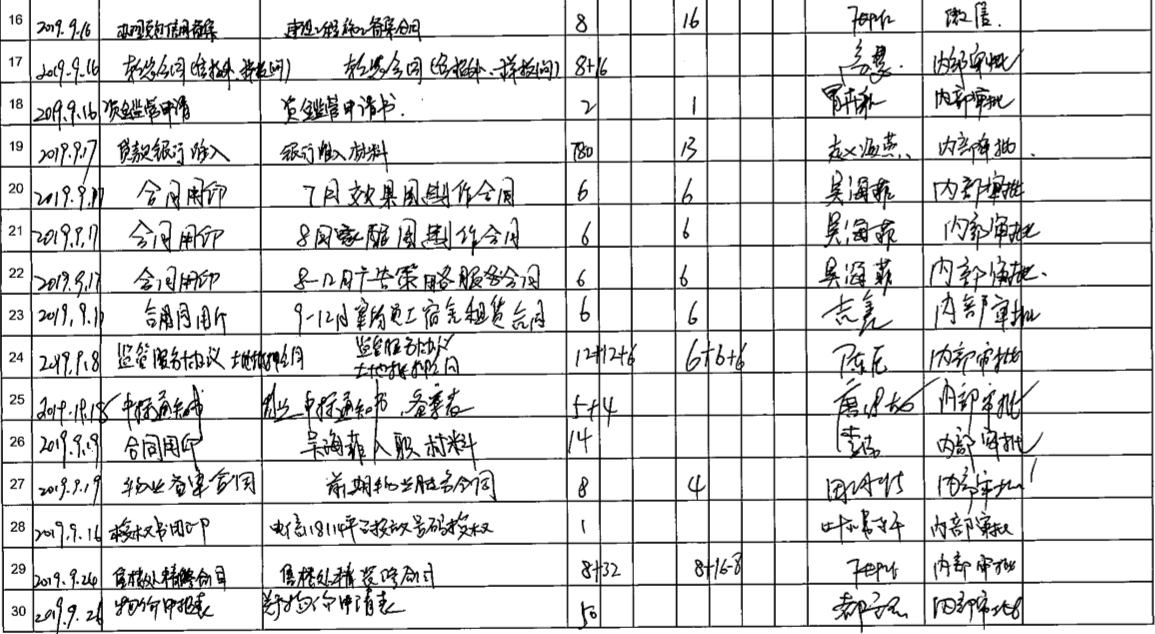 16 2019.9.16 8 16 微信.
17 2019.9.16 8+16 内部审批
18 2019.9.16 资金监管申请 资金监管申请书. 2 1 内部审批
19 2019.9.17 贷款银行准入 银行准入材料 780 13 赵海燕 内部审批.
20 2019.9.17 合同用印 7月效果图制作合同 6 6 吴海菲 内部审批
21 2019.9.17 合同用印 8月家配图制作合同 6 6 吴海菲 内部审批
22 2019.9.17 合同用印 8-12月广告策略服务合同 6 6 吴海菲 内部审批.
23 2019.9.17 合同用印 9-12月案场员工宿舍租赁合同 6 6 内部审批
24 2019.9.18 监管服务协议 土地抵押合同 监管服务协议 土地抵押合同 12+12+6 6+6+6 内部审批
25 中标通知书 中标通知书、备案表 5+4 内部审批
26 2019.9.19 合同用印 吴海菲入职材料 14 内部审批
27 2019.9.19 物业备案合同 前期物业服务合同 8 4 内部审批
28 2019.9.16 授权书用印 电信18114平台授权号码授权 1 内部审批
29 2019.9.24 售楼处精装修合同 8+32 8+16-8 内部审批
30 2019.9.26 物价申报表 关于物价申请表 50 内部审批